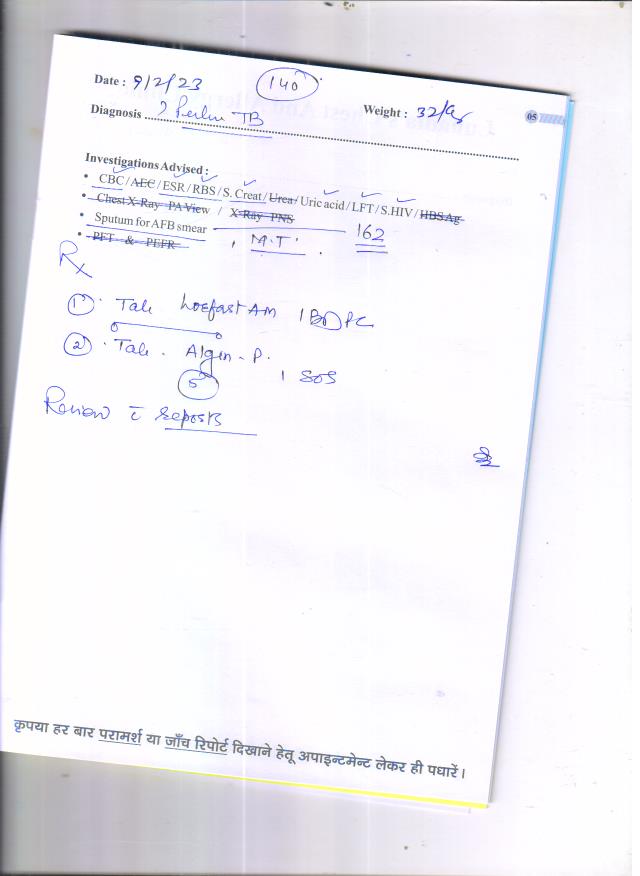 Date : 9/2/23 140 Weight : 32/kg 05
Diagnosis ? TB
Investigations Advised :
• CBC / AEC / ESR / RBS / S. Creat / Urea / Uric acid / LFT / S.HIV / HBSAg
• Chest X-Ray PA View / X-Ray PNS
• Sputum for AFB smear 162
• PFT & PEFR , M.T.
Rx
① Tab AM 1 BD PC
② Tab. Algin - P.
5 1 SOS
Review c̄ reports
कृपया हर बार परामर्श या जाँच रिपोर्ट दिखाने हेतू अपाइन्टमेन्ट लेकर ही पधारें।